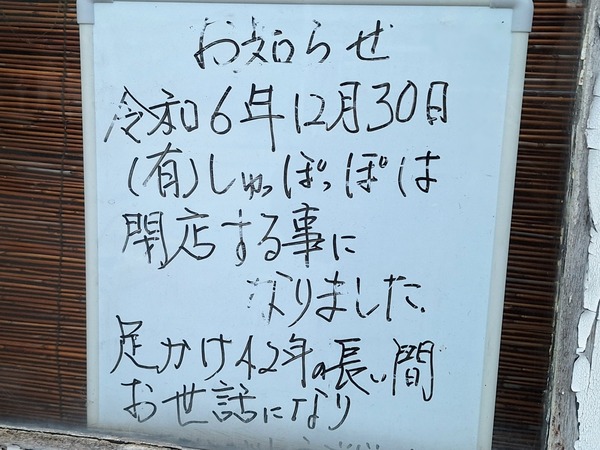 お知らせ
令和6年12月30日
(有)しゅっぽっぽは
閉店する事に
なりました.
足かけ42年の長い間
お世話になり